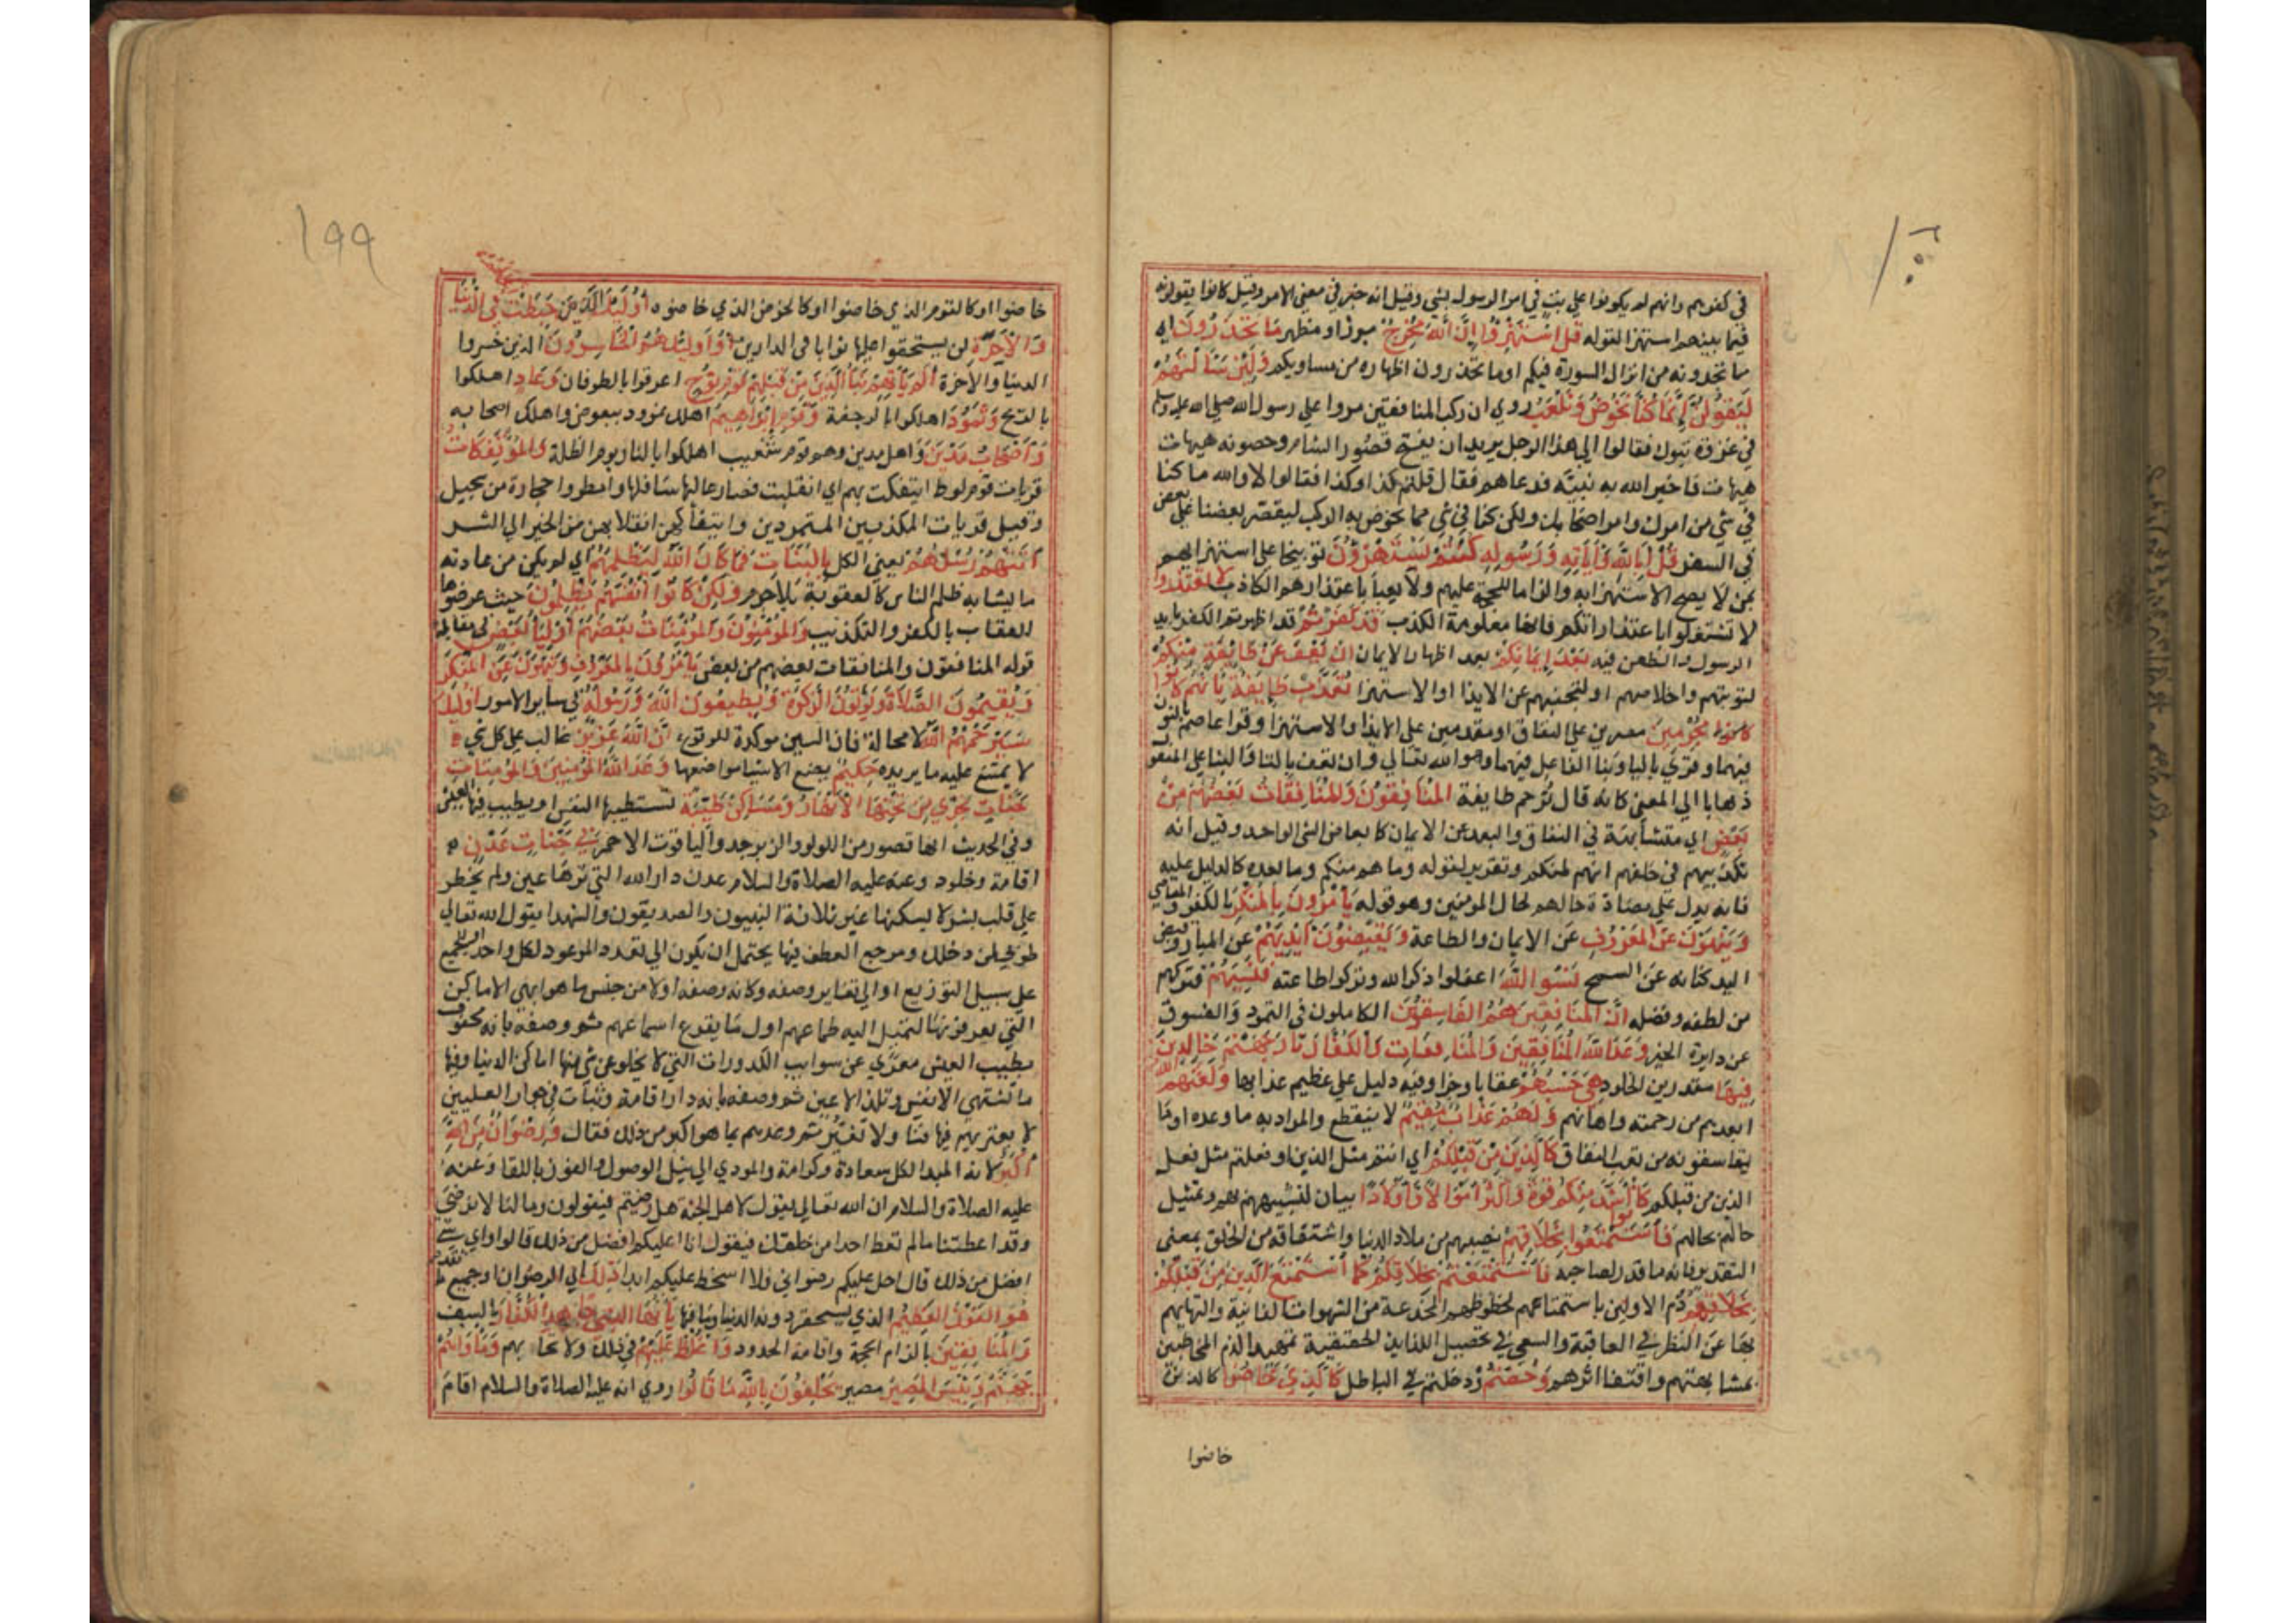 في كفرهم وانهم لم يكونوا علي بت في امر الرسول بشي وقيل انه خبر في معني الامر وقيل كانوا يقولونه
فيما بينهم استهزا لقوله قل استهزؤا ان الله مخرج مبرز او مظهر ما تحذرون اي
ما تحذرونه من انزال السورة فيكم او ما تحذرون اظهاره من مساويكم ولئن سالتهم
ليقولن انما كنا نخوض ونلعب روي ان ركب المنافقين مروا علي رسول الله صلي الله عليه وسلم
في غزوة تبوك فقالوا الي هذا الرجل يريد ان يفتح قصور الشام وحصونه هيهات
هيهات فاخبر الله به نبيه فدعاهم فقال قلتم كذا وكذا فقالوا لا والله ما كنا
في شي من امرك وامر اصحابك ولكن كنا في شي مما يخوض به الركب ليقصر بعضنا علي بعض
في السفر قل ابالله واياته ورسوله كنتم تستهزؤن توبيخا علي استهزايهم
بمن لا يصح الاستهزا به والزاما للحجة عليهم ولا يعبأ باعتذارهم الكاذب لا تعتذروا
لا تشتغلوا باعتذاراتكم فانها معلومة الكذب قد كفرتم قد اظهرتم الكفر بايذا
الرسول والطعن فيه بعد ايمانكم بعد اظهار الايمان ان نعف عن طايفة منكم
لتوبتهم واخلاصهم او لتجنبهم عن الايذا او الاستهزا نعذب طايفة بانهم كانوا
مجرمين مصرين علي النفاق او مقدمين علي الايذا والاستهزا وقرا عاصم بالنون
فيهما وقري باليا وبنا الفاعل فيهما وهو الله تعالي وان تعف بالتا والبنا علي المفعول
ذهابا الي المعني كانه قال ترحم طايفة المنافقون والمنافقات بعضهم من
بعض اي متشابهة في النفاق والبعد عن الايمان كابعاض الشي الواحد وقيل انه
تكذيبهم في حلفهم انهم لمنكم وتقرير لقوله وما هم منكم وما بعده كالدليل عليه
فانه يدل علي مضادة حالهم لحال المومنين وهو قوله يامرون بالمنكر بالكفر والمعاصي
وينهون عن المعروف عن الايمان والطاعة ويقبضون ايديهم عن المبار وقبض
اليد كناية عن الشح نسوا الله اغفلوا ذكر الله وتركوا طاعته فنسيهم فتركهم
من لطفه وفضله ان المنافقين هم الفاسقون الكاملون في التمرد والفسوق
عن دايرة الخير وعد الله المنافقين والمنافقات والكفار نار جهنم خالدين
فيها مقدرين الخلود هي حسبهم عقابا وجزا وفيه دليل علي عظيم عذابها ولعنهم الله
ابعدهم من رحمته واهانهم ولهم عذاب مقيم لا ينقطع والمراد به ما وعده او ما
يقاسونه من تعب النفاق كالذين من قبلكم اي انتم مثل الذين او فعلتم مثل فعل
الذين من قبلكم كانوا اشد منكم قوة واكثر اموالا واولادا بيان لتشبيههم بهم وتمثيل
حالهم بحالهم فاستمتعوا بخلاقهم نصيبهم من ملاذ الدنيا واشتقاقه من الخلق بمعني
التقدير فانه ما قدر لصاحبه فاستمتعتم بخلاقكم كما استمتع الذين من قبلكم
بخلاقهم ذم الاولين باستمتاعهم لحظوظهم المخدجة من الشهوات الفانية والتهايهم
بها عن النظر في العاقبة والسعي في تحصيل اللذايذ الحقيقية تمهيدا لذم المخاطبين
بمشابهتهم واقتفا اثرهم وخضتم ودخلتم في الباطل كالذي خاضوا كالذين
خاضوا
١٩٩
خاضوا او كالقوم الذي خاضوا او كالخوض الذي خاضوه اولئك الذين حبطت اعمالهم في الدنيا
والاخرة لن يستحقوا عليها ثوابا في الدارين واولئك هم الخاسرون الذين خسروا
الدنيا والاخرة الم ياتهم نبأ الذين من قبلهم قوم نوح اغرقوا بالطوفان وعاد اهلكوا
بالريح وثمود اهلكوا بالرجفة وقوم ابراهيم اهلك نمرود ببعوض واهلك اصحابه
واصحاب مدين واهل مدين وهم قوم شعيب اهلكوا بالنار يوم الظلة والمؤتفكات
قريات قوم لوط ايتفكت بهم اي انقلبت فصار عاليها سافلها وامطروا حجارة من سجيل
وقيل قريات المكذبين المتمردين وايتفاكهن انقلابهن من الخير الي الشر
اتتهم رسلهم يعني الكل بالبينات فما كان الله ليظلمهم اي لم يكن من عادته
ما يشابه ظلم الناس كالعقوبة بلا جرم ولكن كانوا انفسهم يظلمون حيث عرضوها
للعقاب بالكفر والتكذيب والمؤمنون والمؤمنات بعضهم اوليا بعض في مقابلة
قوله المنافقون والمنافقات بعضهم من بعض يامرون بالمعروف وينهون عن المنكر
ويقيمون الصلاة ويؤتون الزكوة ويطيعون الله ورسوله في ساير الامور اولئك
سيرحمهم الله لا محالة فان السين موكدة للوقوع ان الله عزيز غالب علي كل شي
لا يمتنع عليه ما يريده حكيم يضع الاشيا مواضعها وعد الله المؤمنين والمؤمنات
جنات تجري من تحتها الانهار ومساكن طيبة تستطيبها النفس او يطيب فيها العيش
وفي الحديث انها قصور من اللولو والزبرجد والياقوت الاحمر في جنات عدن
اقامة وخلود وعنه عليه الصلاة والسلام عدن دار الله التي لم ترها عين ولم يخطر
علي قلب بشر لا يسكنها غير ثلاثة النبيون والصديقون والشهدا يقول الله تعالي
طوبي لمن دخلك ومرجع العطف فيها يحتمل ان يكون الي تعدد الموعود لكل واحد او للجميع
علي سبيل التوزيع او الي تغاير وصفه وكانه وصفه اولا من جنس ما هو ابهي الاماكن
التي يعرفونها لتميل اليه طباعهم اول ما يقرع اسماعهم ثم وصفه بانه محفوف
بطيب العيش معري عن شوايب الكدورات التي لا يخلو عن شي منها اماكن الدنيا وفيها
ما تشتهي الانفس وتلذ الاعين ثم وصفه بانه دار اقامة وثبات في جوار العليين
لا يعتريهم فيها فنا ولا تغير ثم وعدهم بما هو اكبر من ذلك فقال ورضوان من الله
اكبر لانه المبدا لكل سعادة وكرامة والمودي الي نيل الوصول والفوز باللقا وعنه
عليه الصلاة والسلام ان الله تعالي يقول لاهل الجنة هل رضيتم فيقولون وما لنا لا نرضي
وقد اعطيتنا ما لم تعط احدا من خلقك فيقول انا اعطيكم افضل من ذلك قالوا واي شي
افضل من ذلك قال احل عليكم رضواني فلا اسخط عليكم ابدا ذلك اي الرضوان او جميع ما تقدم
هو الفوز العظيم الذي يستحقر دونه الدنيا وما فيها يا ايها النبي جاهد الكفار بالسيف
والمنافقين بالزام الحجة واقامة الحدود واغلظ عليهم في ذلك ولا تحابهم وماواهم
جهنم وبئس المصير مصيرهم يحلفون بالله ما قالوا روي انه عليه الصلاة والسلام اقام